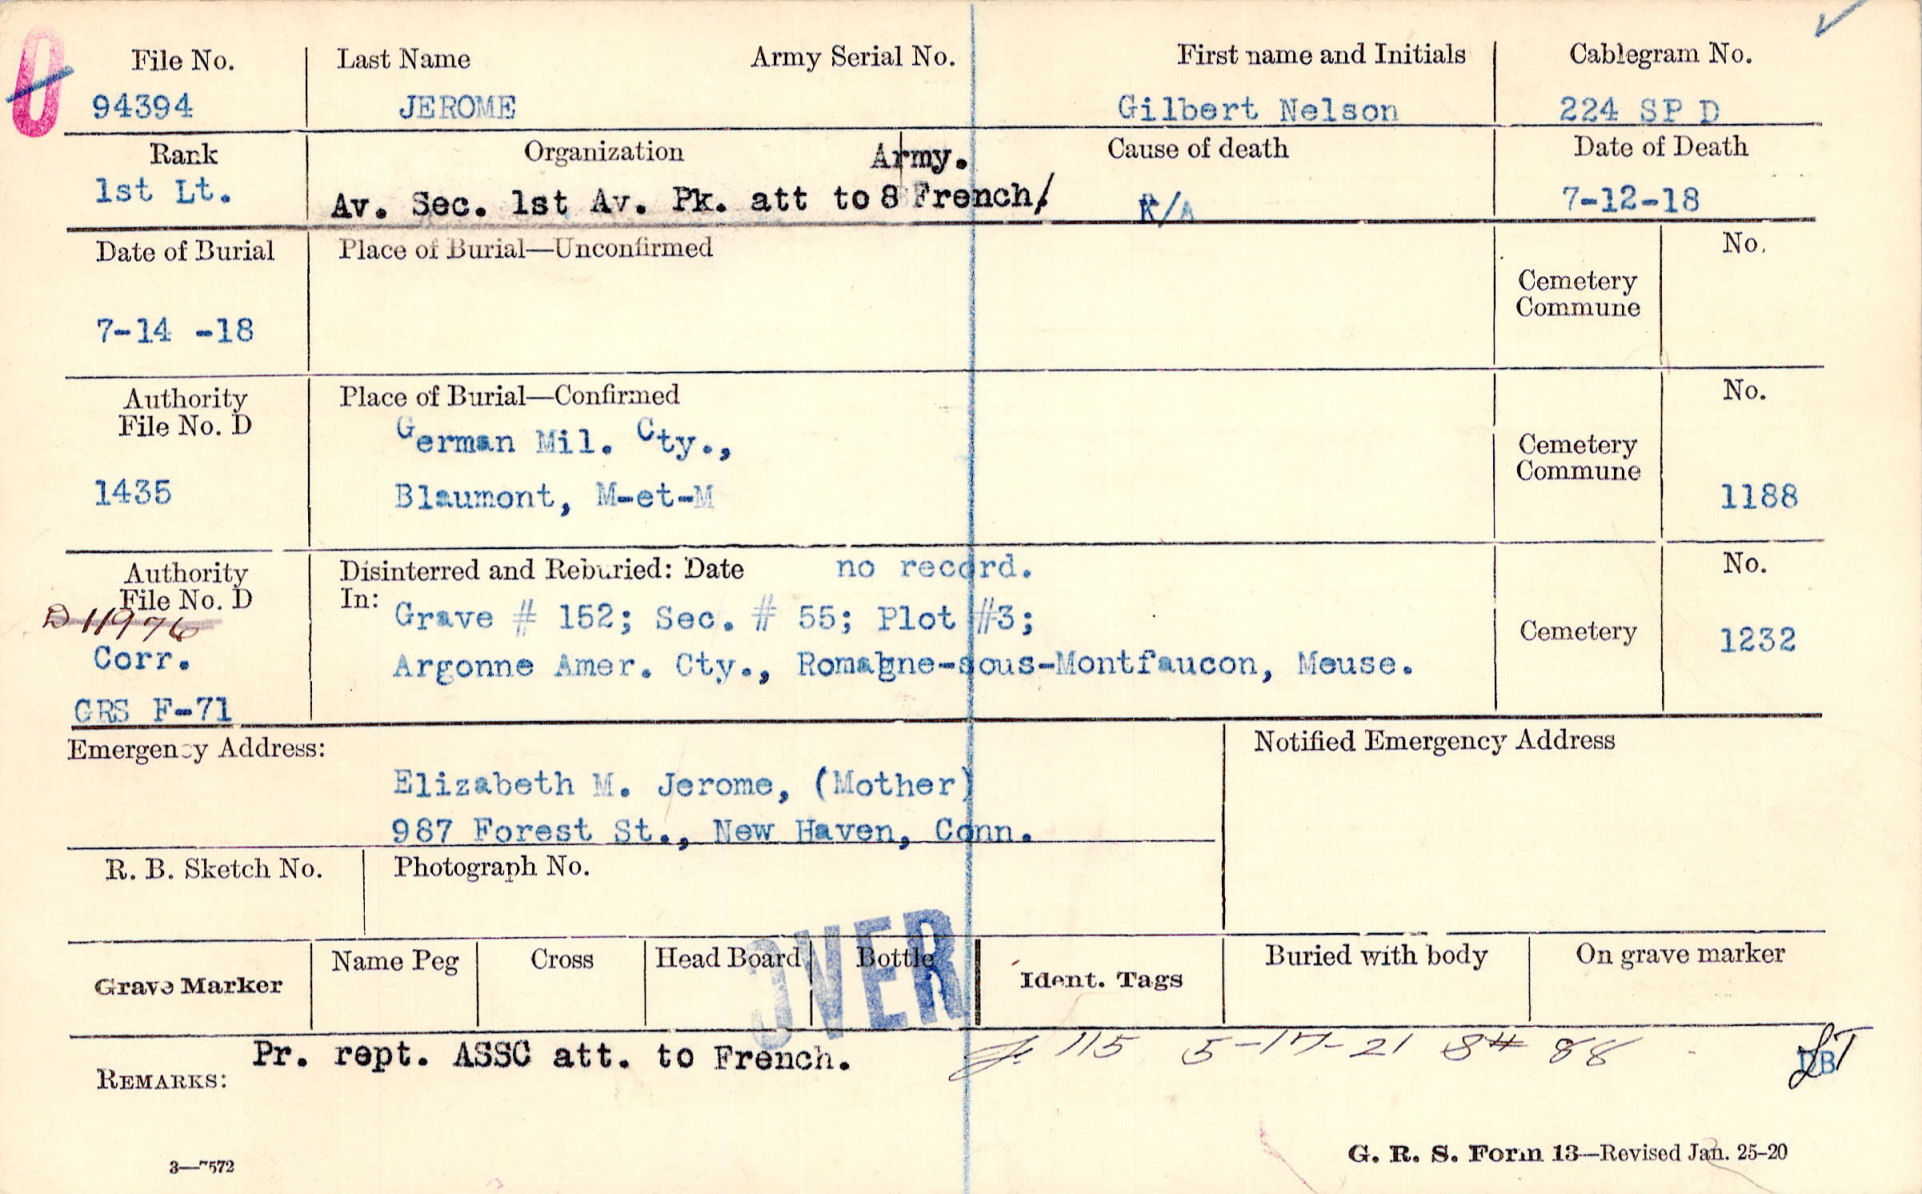 File No. Last Name Army Serial No. First name and Initials Cablegram No.
94394 JEROME Gilbert Nelson 224 SP D
Rank Organization Army. Cause of death Date of Death
1st Lt. Av. Sec. 1st Av. Pk. att to 8 French/ K/A 7-12-18
Date of Burial Place of Burial—Unconfirmed No.
Cemetery
Commune
7-14 -18
Authority Place of Burial—Confirmed No.
File No. D German Mil. Cty., Cemetery
Commune
1435 Blaumont, M-et-M 1188
Authority Disinterred and Reburied: Date no record. No.
File No. D In: Grave # 152; Sec. # 55; Plot #3;
D 11976 Cemetery 1232
Corr. Argonne Amer. Cty., Romagne-sous-Montfaucon, Meuse.
GRS F-71
Emergency Address: Notified Emergency Address
Elizabeth M. Jerome, (Mother)
987 Forest St., New Haven, Conn.
R. B. Sketch No. Photograph No.
OVER
Grave Marker Name Peg Cross Head Board Bottle Ident. Tags Buried with body On grave marker
REMARKS: Pr. rept. ASSC att. to French. 115 5-17-21 8# 88
DB
3—7572 G. R. S. Form 13—Revised Jan. 25-20